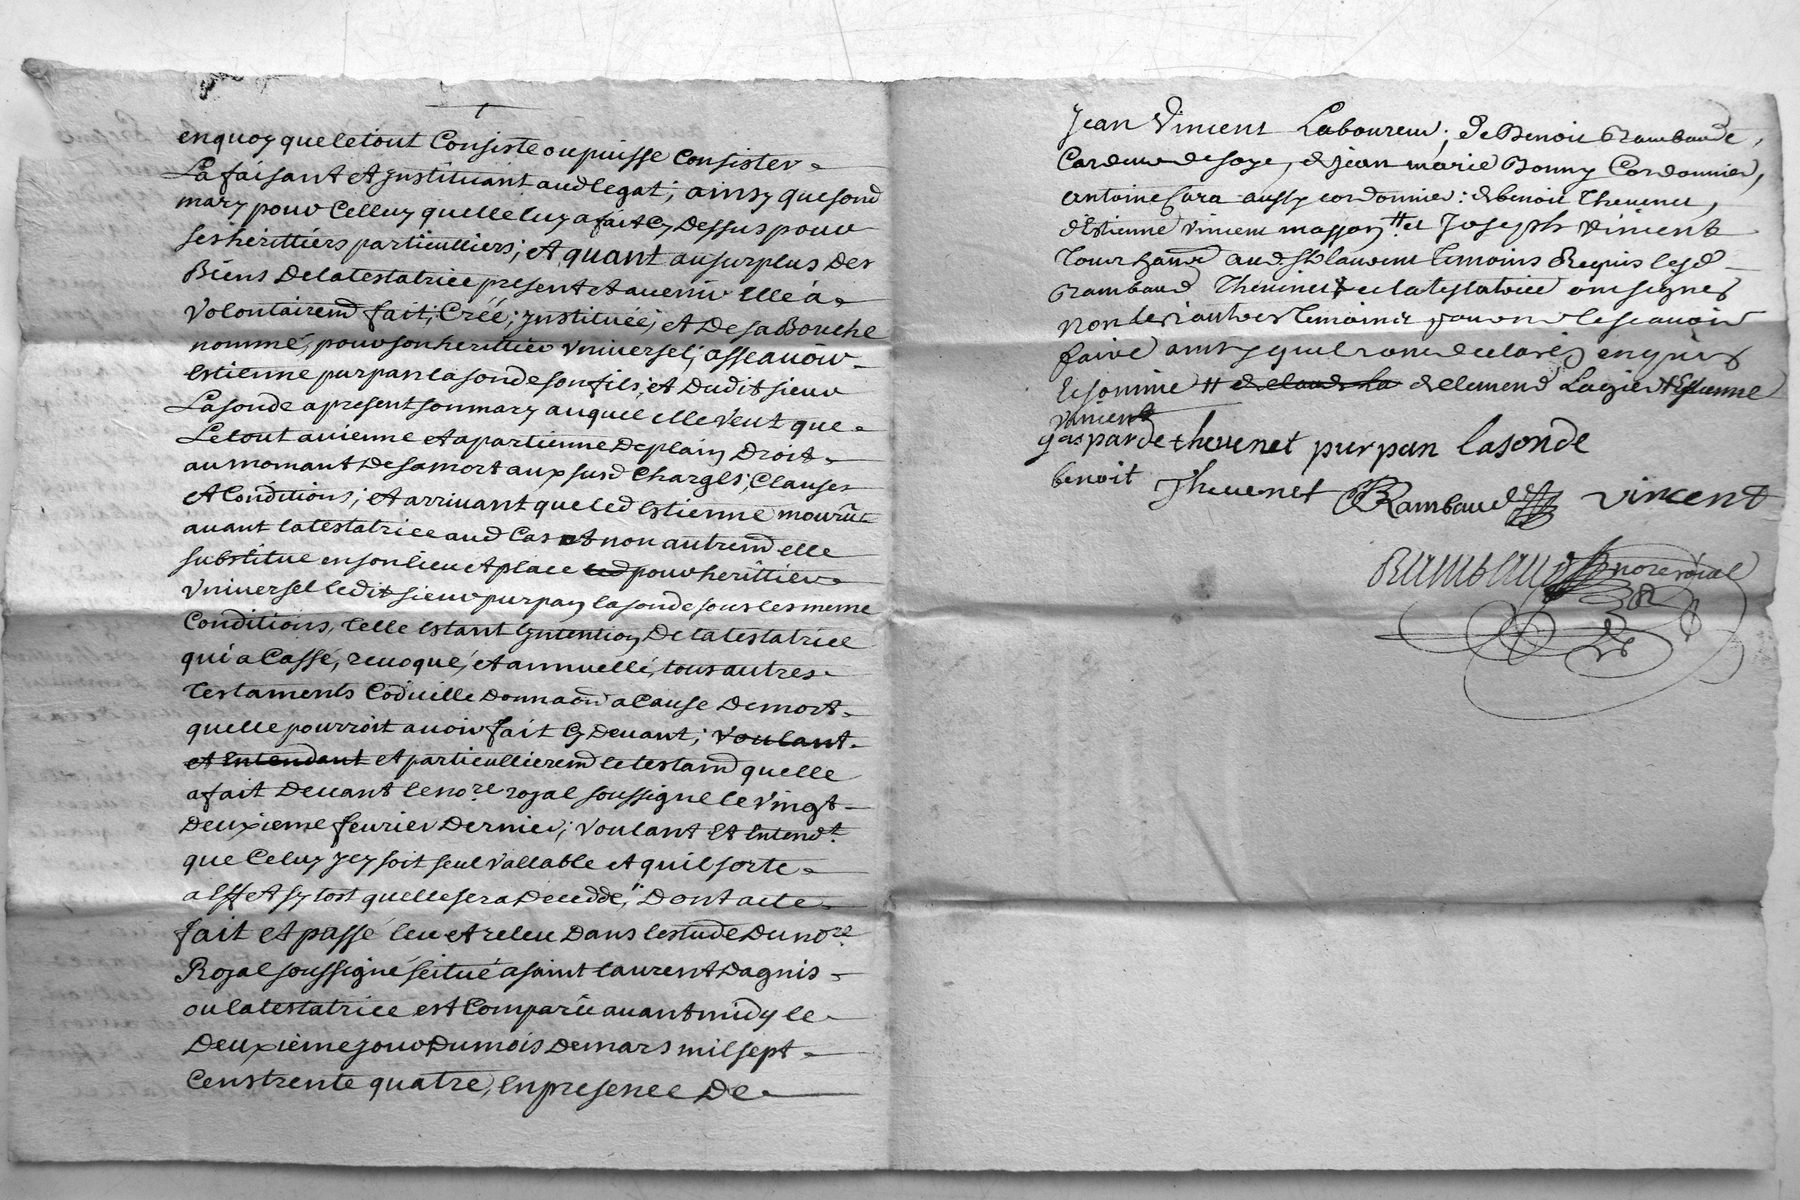 enquoy que le tout Consiste ou puisse Consister
La faisant et jnstituant aud legat; ainsy que sond
mary pour Celluy quelle luy a fait Cy Dessus pour
ses hérittiers particulliers; et quant au surplus Des
Biens De la testatrice présent et auenir Elle à
Volontairemd fait; Créé; jnstituée; et De sa Bouche
nommé, pour son herittier Vniversel; asseauoir
Estienne purpan lasonde son fils, et Dudit sieur
Lasonde apresent son mary auquel elle Veut que
Le tout auienne et apartienne De plain Droit
au momant De sa mort aux susd Charges; Clauses
et Conditions; et arriuant que led Estienne mourût
auant la testatrice aud Cas et non autremd elle
substitue en son lieu et place led pour herittier
Vniversel ledit sieur purpan lasonde sous les meme
Conditions, telle Estant Lyntention De la testatrice
qui a Cassé, reuoqué, et annuellé, tous autres
Testaments Codicille Donnaon a Cause De mort
quelle pourroit auoir fait Cy Deuant; Voulant
et Entendant et particullieremd le testamd quelle
a fait Deuant le nore royal soussigne le Vingt
Deuxieme feurier Dernier; Voulant Et Entendt
que Celuy jcy soit seul Vallable et quil sorte
a Effet sy tost quelle sera Decedde; Dont acte
fait et passé leu et releu Dans lestude Du nore
Royal soussigné scitué a saint laurent Dagnis
ou la testatrice est Comparüe auant midy le
Deuxième jour Du mois De mars mil sept
Cens trente quatre, En presence De
Jean Vincent Laboureur; & Benoit Rambaud
Cardeur de soye, & jean marie Bonny Cordonnier,
antoine Cara aussy cordonnier: & benoit Theuenet,
& Estienne Vincent masson # et Joseph Vincent
Tous aud. St laurent temoins Requis lesd
Rambaud Theuenet et la testatrice ont signés
non les autres temoins pour ne le scauoir
faire ainsy quil ont declarés enquis
et somme # & claude La & clemend Lagier # Estienne
Vincent
gasparde theuenet purpan lasonde
benoit Theuenet Rambaud Vincent
Rambaud nore roial